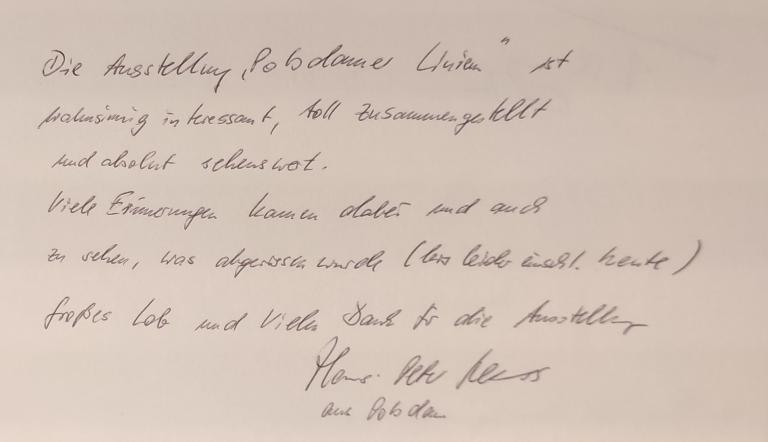 Die Ausstellung „Potsdamer Linien“ ist
wahnsinnig interessant, toll zusammengestellt
und absolut sehenswert.
Viele Erinnerungen kamen dabei und auch
zu sehen, was abgerissen wurde (bis leider einschl. heute)
Großes Lob und Vielen Dank für die Ausstellung
Hans-Peter
aus Potsdam